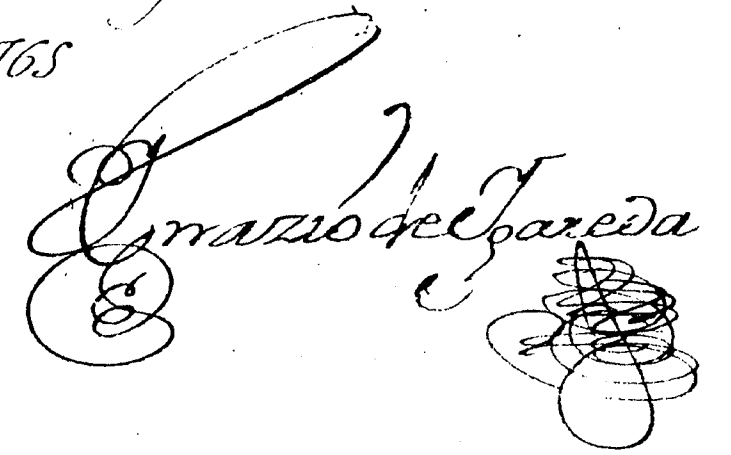 765
Ignazio de Ygareda